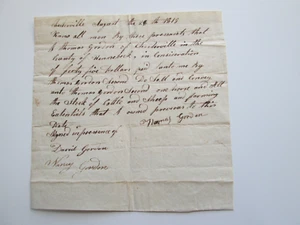 Sedgwick August the 19th 1818
Know all men by these presents that
I Thomas Gordon of Sedgwick in the
County of Hancock, in Consideration
of forty five Dollars paid unto me by
Thomas Gordon Second Do Sell and Convey
unto Thomas Gordon Second one horse and all
the Stock of Cattle and Sheep and farming
Utentials that I owned previous to this
Date
Thomas Gordon
Signed in presence of
David Gordon
Nancy Gordon